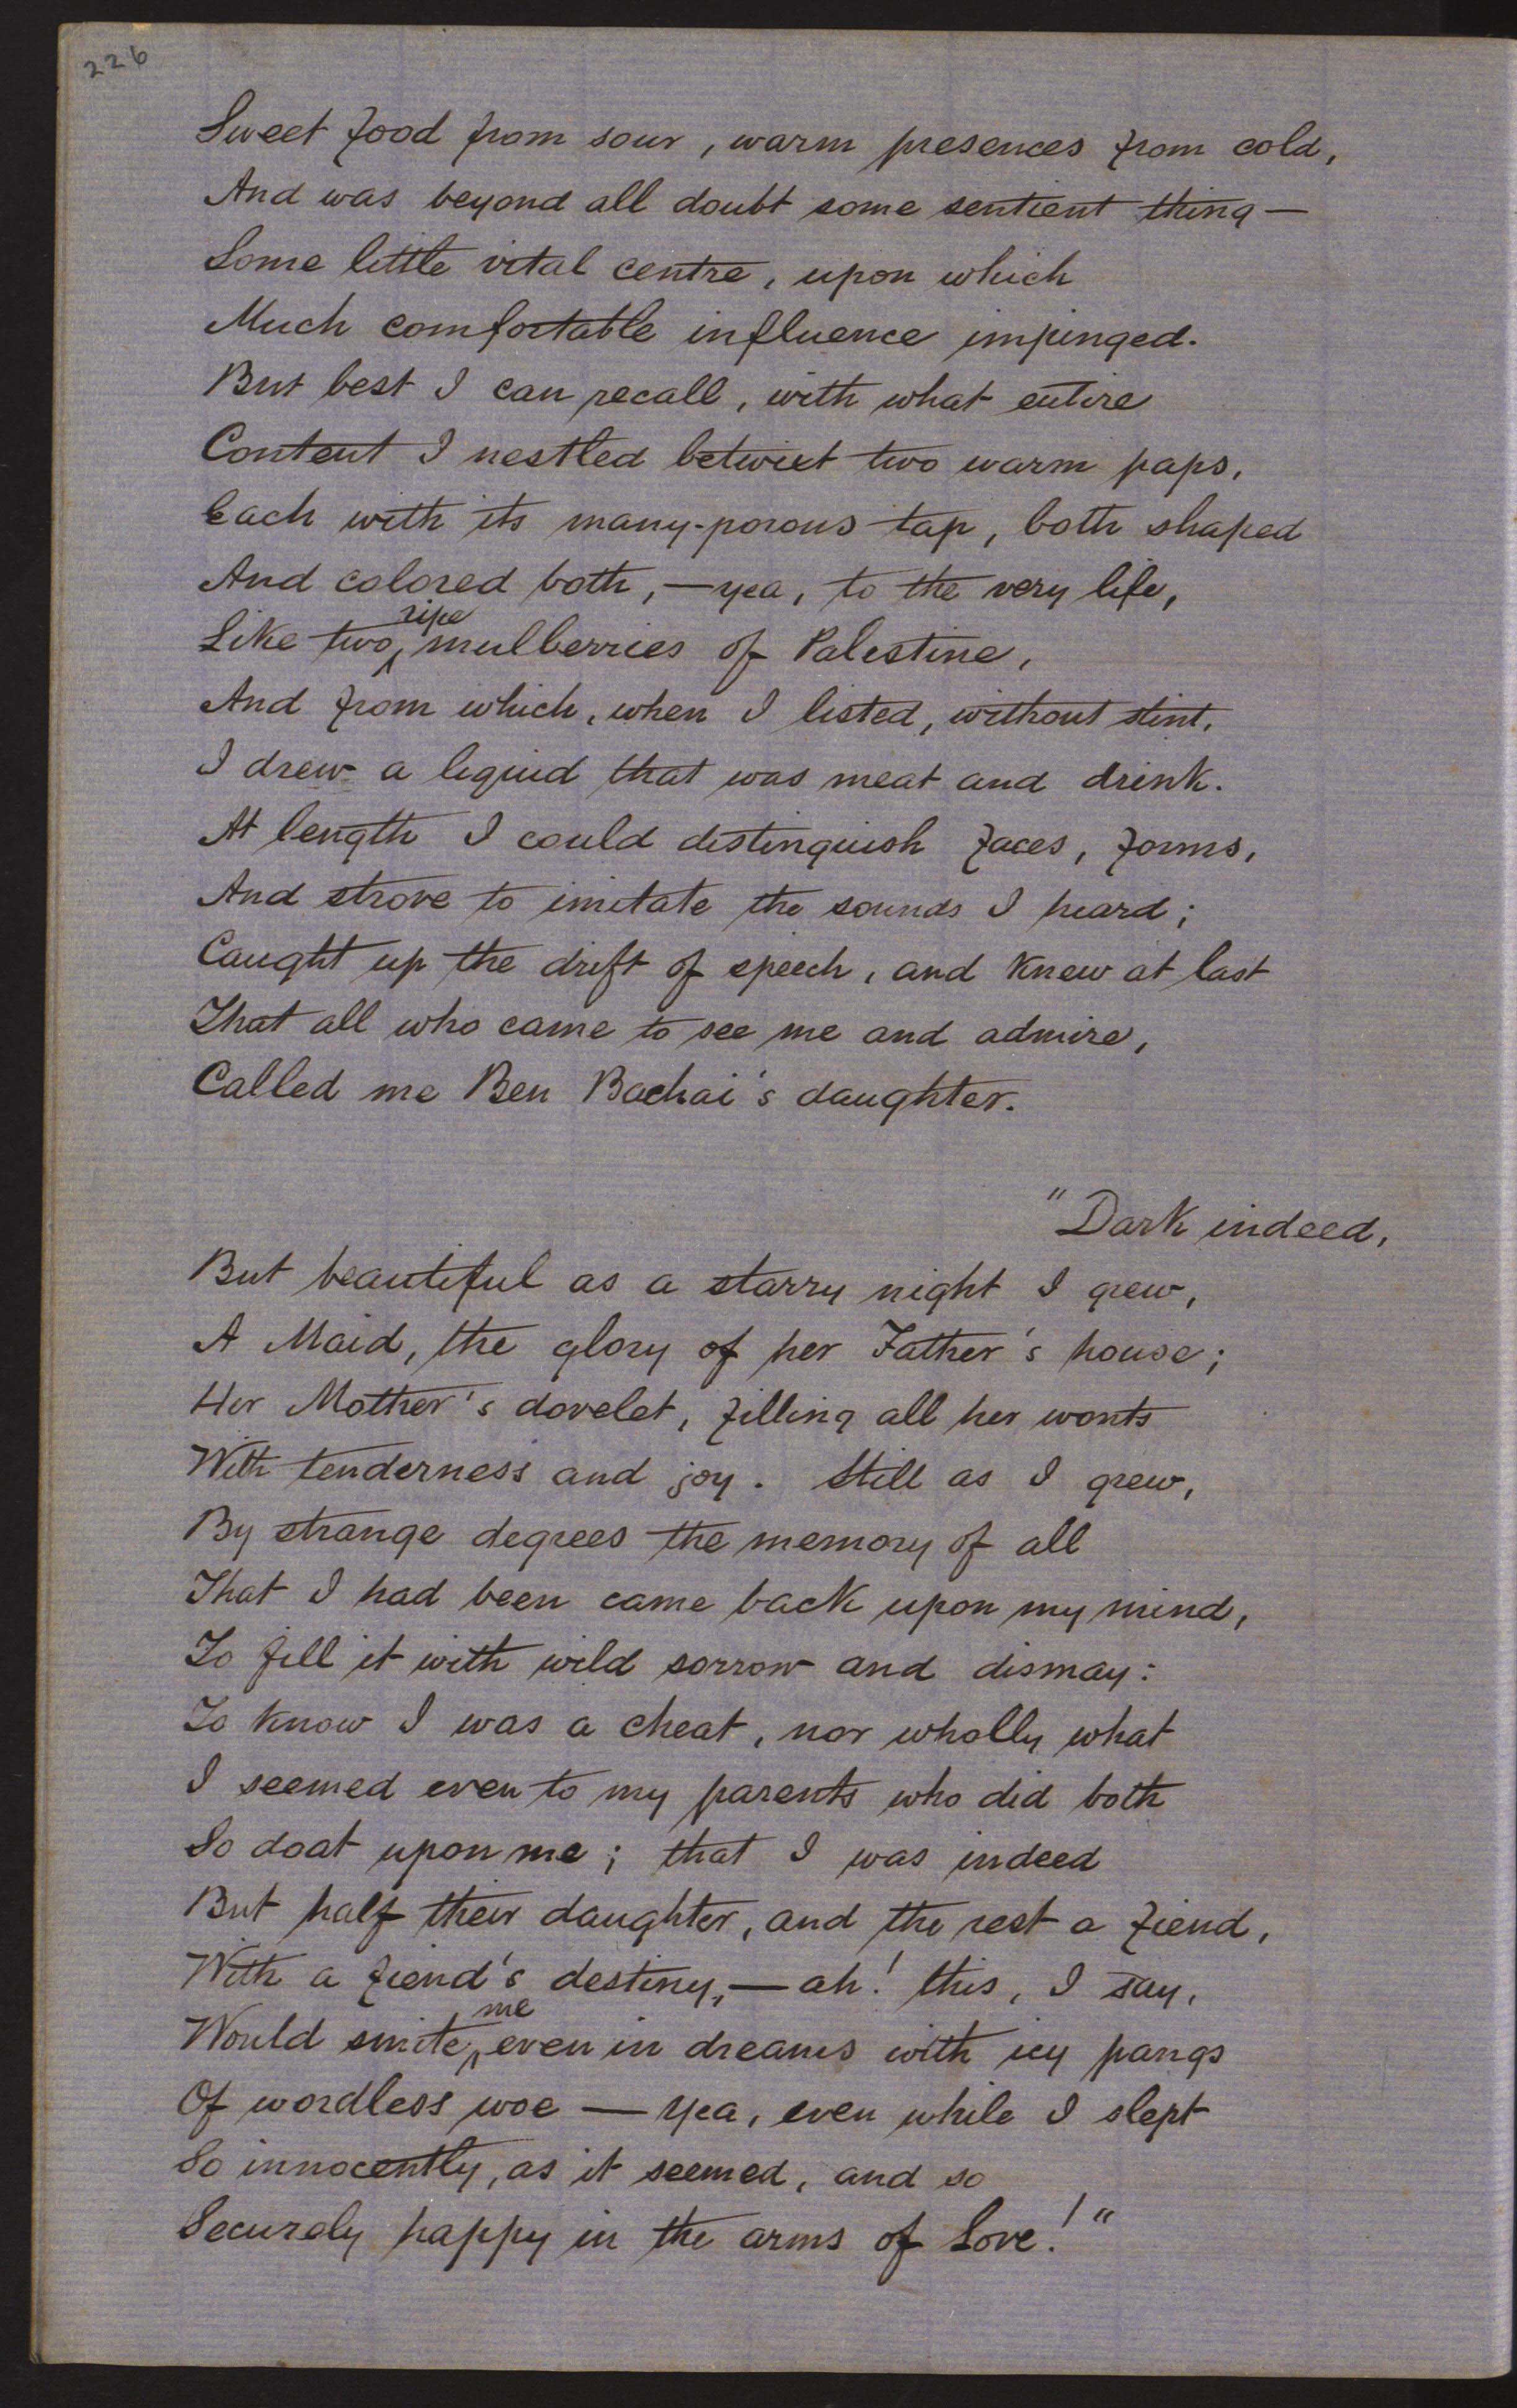 226
Sweet food from sour, warm presences from cold,
And was beyond all doubt some sentient thing —
Some little vital centre, upon which
Much comfortable influence impinged.
But best I can recall, with what entire
Content I nestled betwixt two warm paps,
Each with its many-porous tap, both shaped
And colored both, — yea, to the very life,
Like two ripe mulberries of Palestine,
And from which, when I listed, without stint,
I drew a liquid that was meat and drink.
At length I could distinguish faces, forms,
And strove to imitate the sounds I heard;
Caught up the drift of speech, and knew at last
That all who came to see me and admire,
Called me Ben Bachai's daughter.
"Dark indeed,
But beautiful as a starry night I grew,
A Maid, the glory of her Father's house;
Her Mother's dovelet, filling all her wonts
With tenderness and joy. Still as I grew,
By strange degrees the memory of all
That I had been came back upon my mind,
To fill it with wild sorrow and dismay:
To know I was a cheat, nor wholly what
I seemed even to my parents who did both
So doat upon me; that I was indeed
But half their daughter, and the rest a fiend,
With a fiend's destiny, — ah! this, I say,
Would smite me even in dreams with icy pangs
Of wordless woe — yea, even while I slept
So innocently, as it seemed, and so
Securely happy in the arms of Love!"